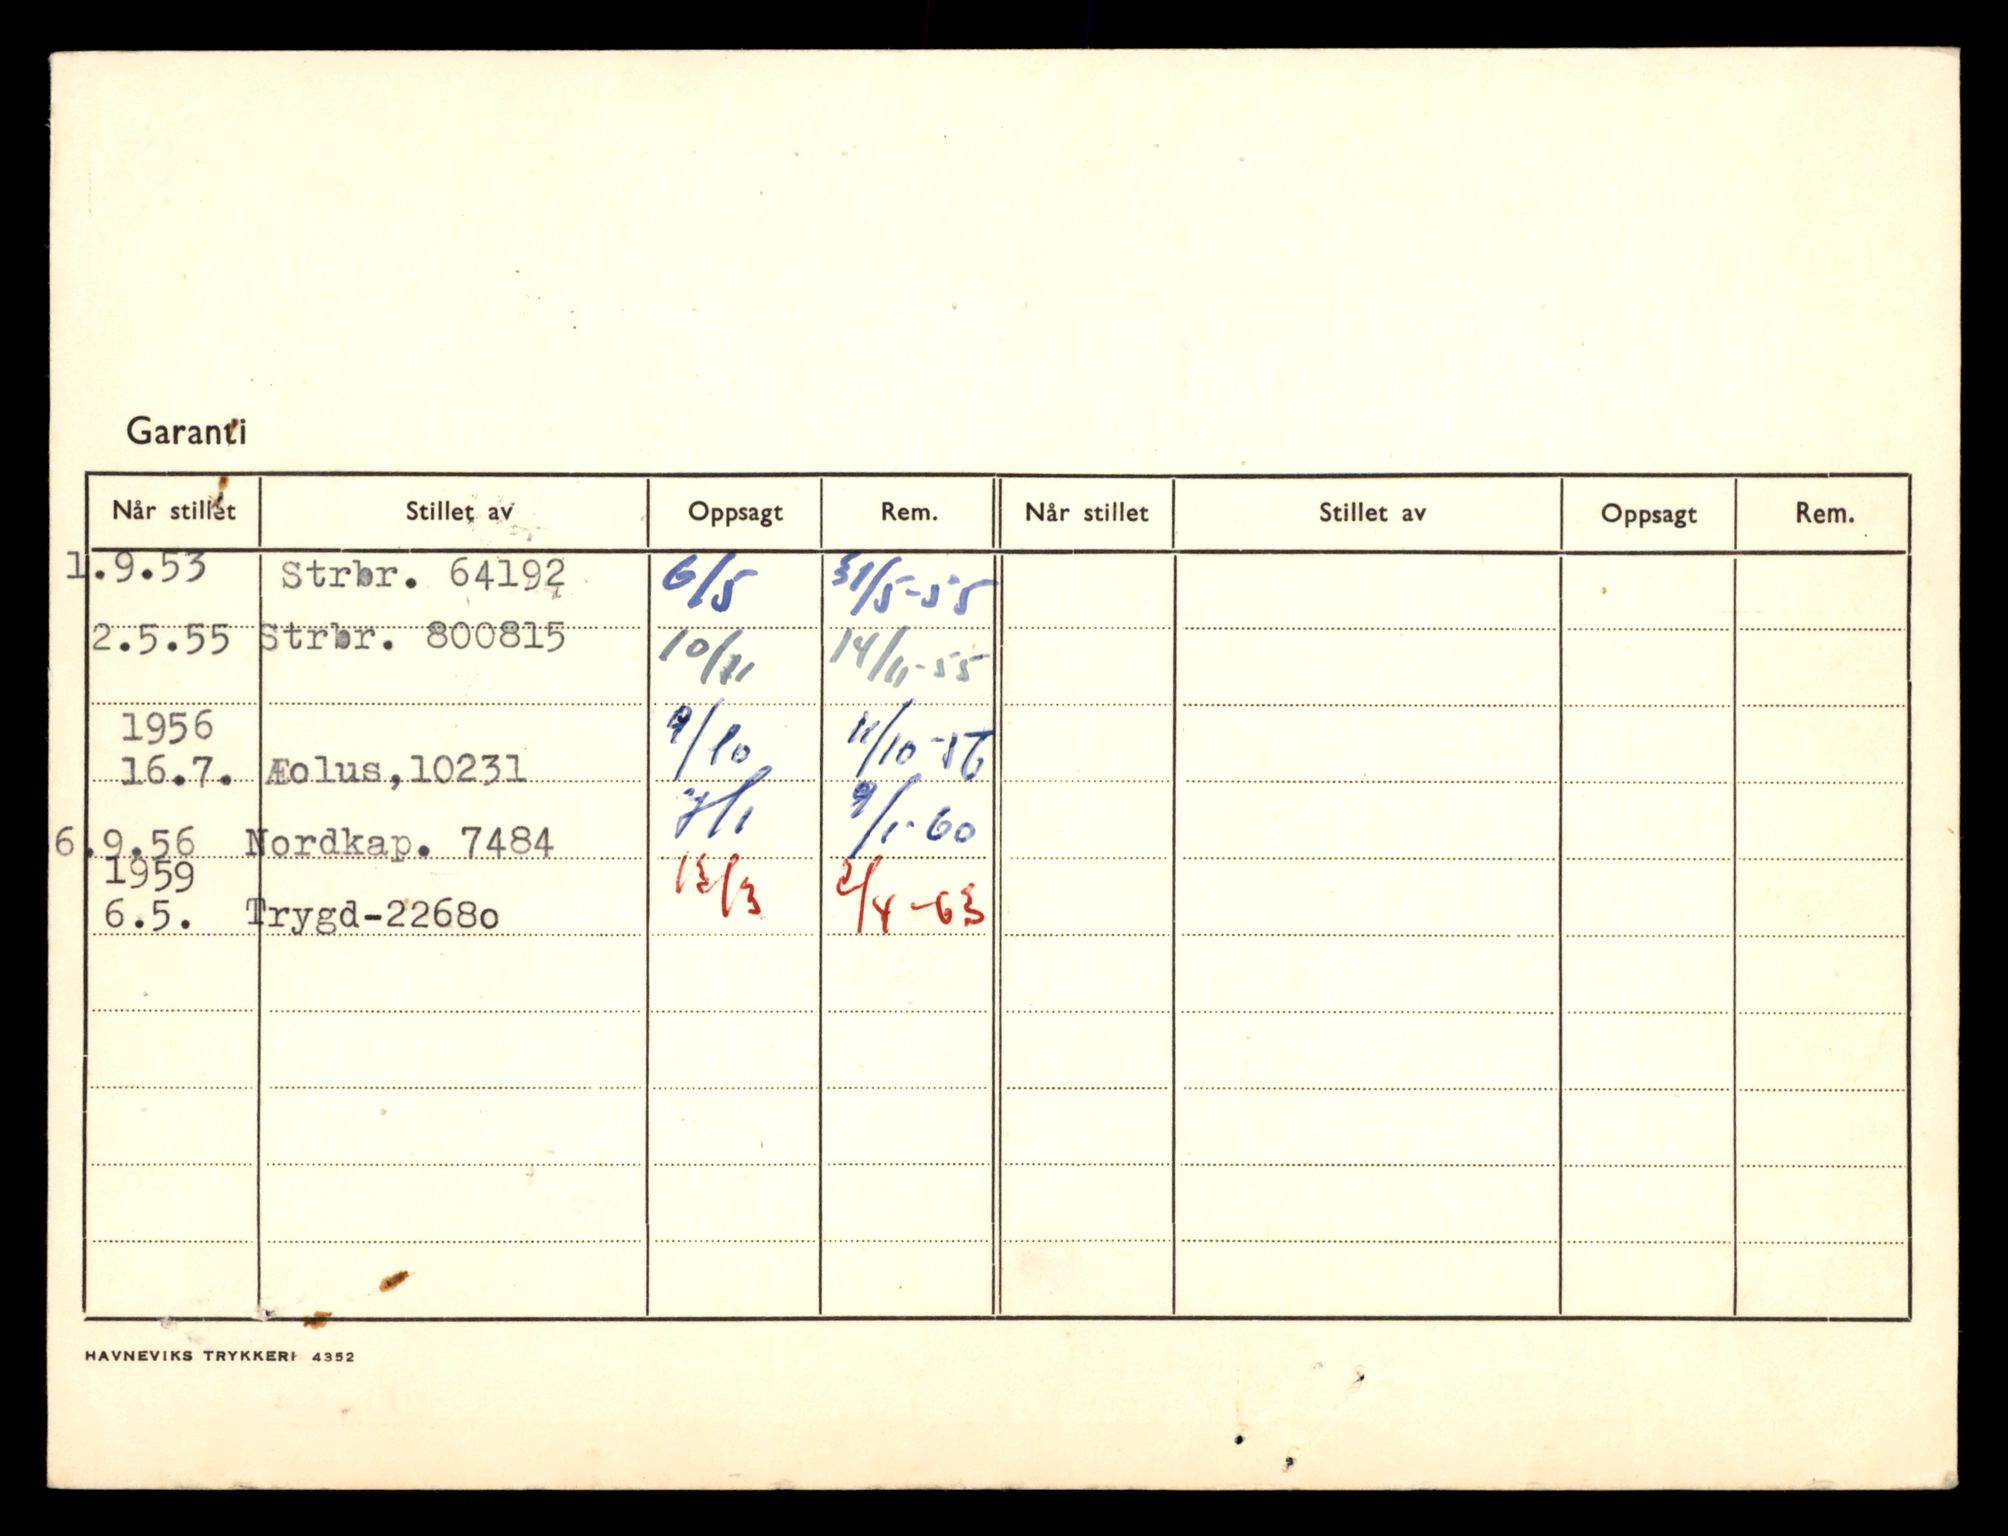 Garanti
Når stillet Stillet av Oppsagt Rem. Når stillet Stillet av Oppsagt Rem.
1.9.53 Strbr. 64192 6/5 31/5-55
2.5.55 Strbr. 800815 10/11 14/11-55
1956 9/10 11/10-56
16.7. Æolus,10231
7/1 9/1-60
6.9.56 Nordkap. 7484
1959 13/3 2/4-63
6.5. Trygd-2268o
HAVNEVIKS TRYKKERI 4352